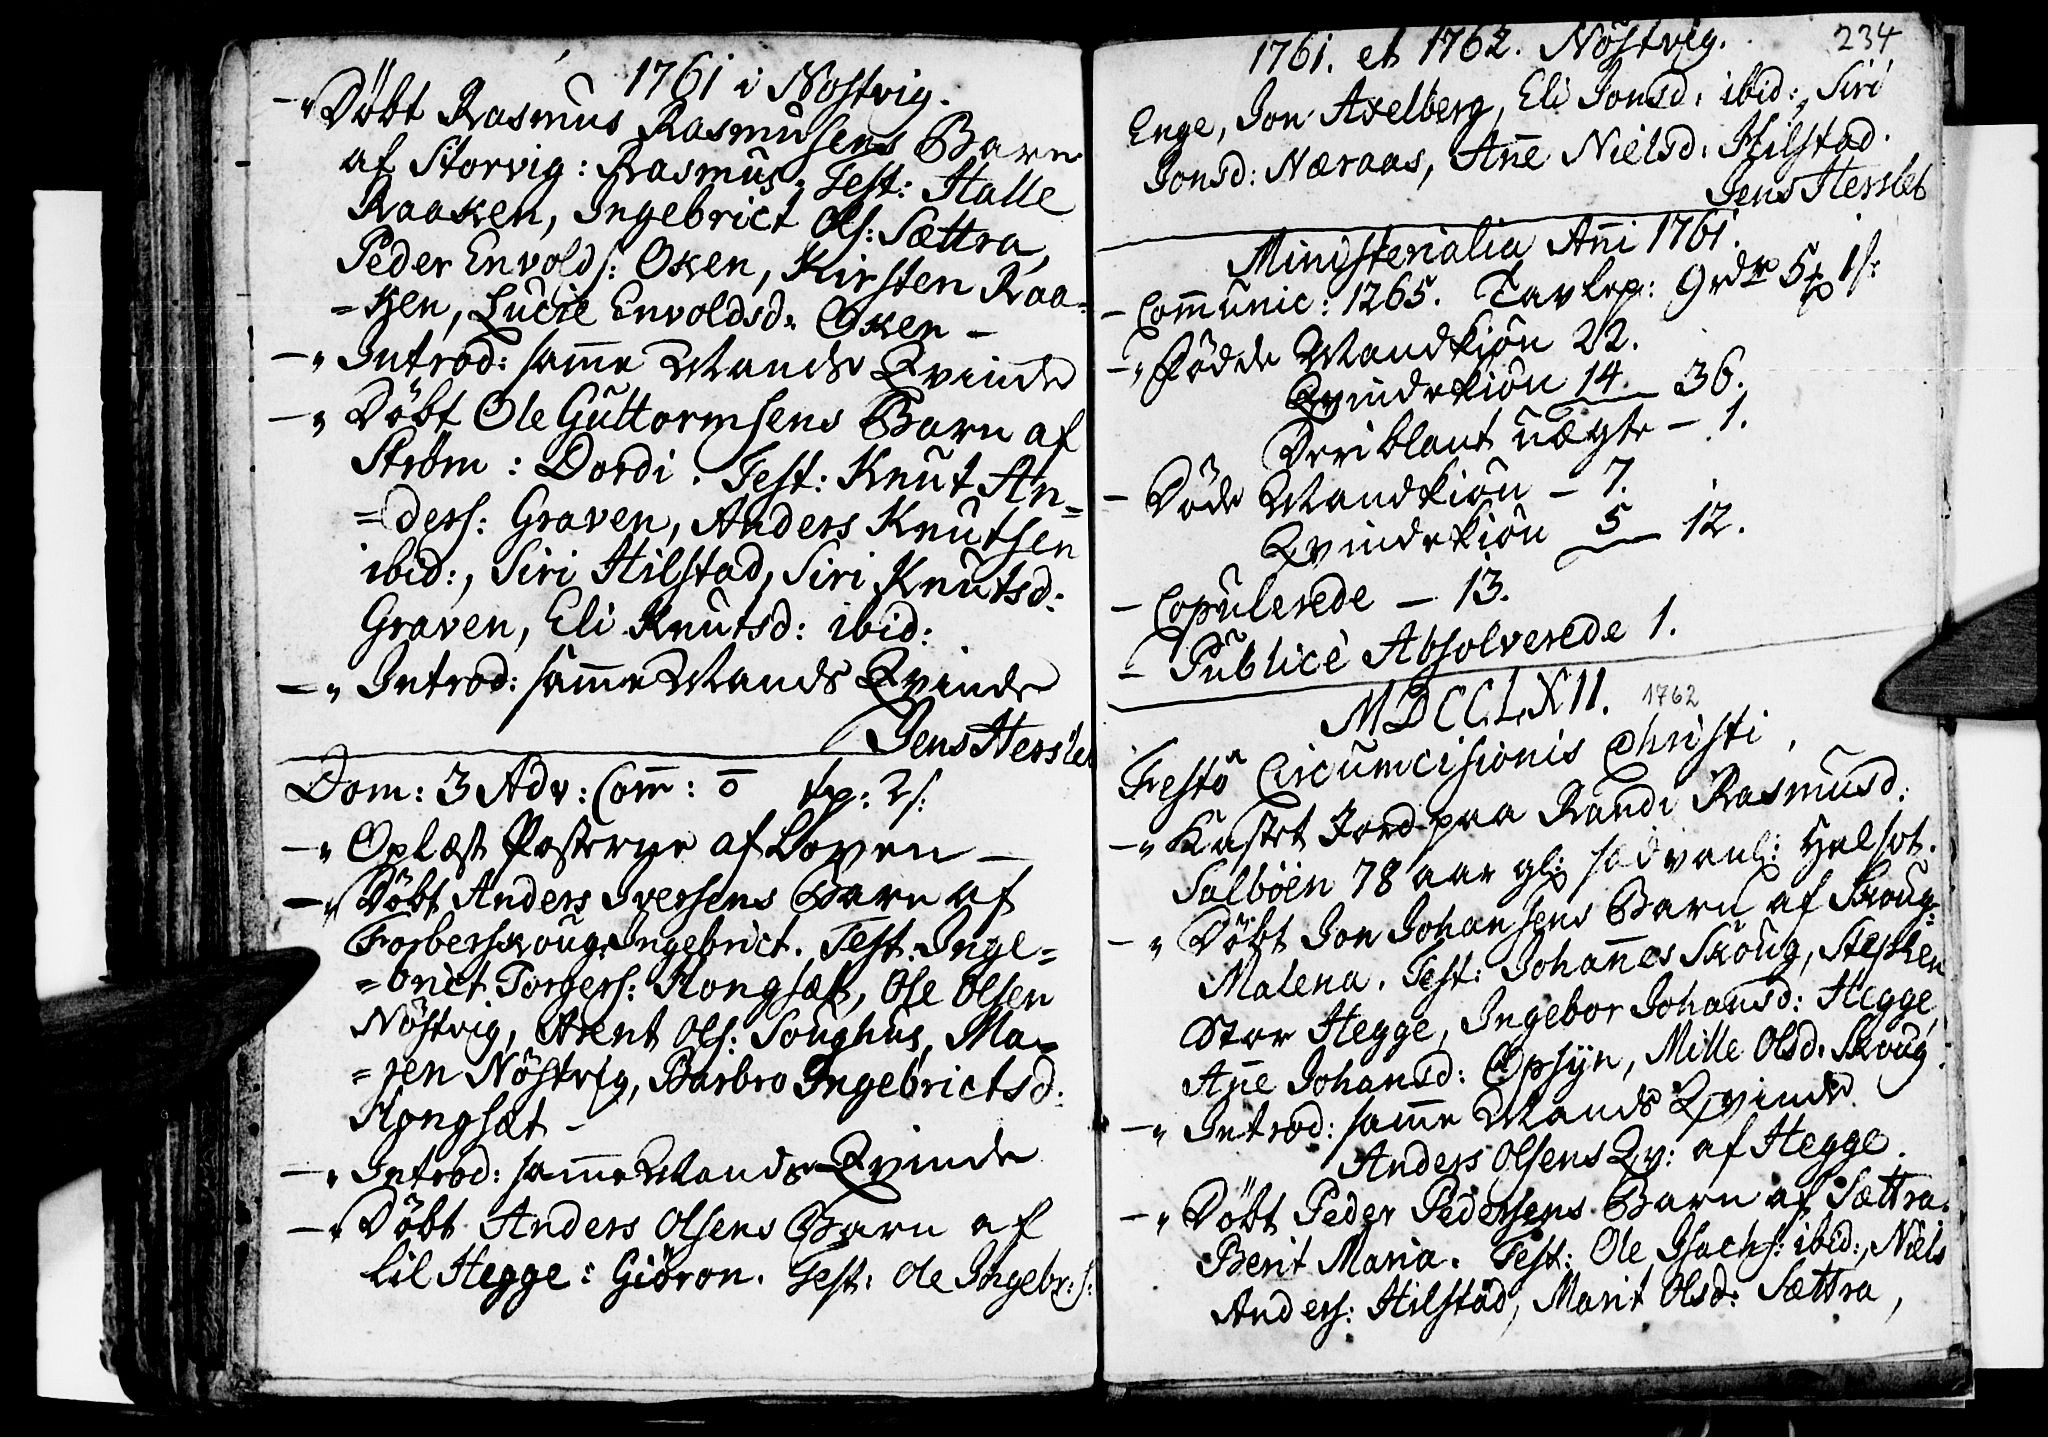 1761 i Nöstvig.
–" Döbt Rasmus Rasmusens Barn
af Storvig: Rasmus. Test: Halle
Raaken, Ingebrict Ols: Sættra,
Peder Envolds: Oxen, Kirsten Raa-
=ken, Lucie Envoldsd: Oxen –
–" Introd: samme Mands Qvinde
–" Döbt Ole Guttormsens Barn af
Strøm: Dordi. Test: Knut An-
=ders: Graven, Anders Knutsen
ibid:, Siri Hilstad, Siri Knutsd:
Graven, Eli Knutsd: ibid:
–" Introd: samme Mands Qvinde
Jens Herslet
Dom: 3 Adv: Com̄: ō tp: 2 s:
–" Oplæst Posterne af Loven –
–" Döbt Anders Iversens Barn af
Forberskoug: Ingebrict. Test: Inge-
=brict Torgers: Kongsæt, Ole Olsen
Nöstvig, Arent Ols: Soughus, Ma-
=ren Nöstvig, Barbro Ingebrictsd:
Kongsæt –
–" Introd: samme Mands Qvinde
–" Döbt Anders Olsens Barn af
lil Hegge: Giöron. Test: Ole Ingebr:s:
1761. et 1762. Nöstvig. 234
Enge, Jon Axelberg, Eli Jonsd: ibid:, Siri
Jonsd: Næraas, An̄e Nielsd: Hilstad.
Jens Herslet
Ministerialia An̄i 1761.
– Com̄unic: 1265. Tavlep: 9 rdr 5 1 s:
–" Födde Mandkiön 22.
Qvindekiön 14. — 36.
Deriblant uægte – 1.
– Döde Mandkiön – 7.
Qvindekiön 5 — 12.
– Copulerede – 13.
– Publicè Absolverede 1.
MDCCLXII. 1762
Festo Circumcisionis Christi
–" Kastet Jord paa Randi Rasmusd:
Solböen 78 aar gl: sædvanl: Helsot.
–" Döbt Jon Johansens Barn af Skoug:
Malena. Test: Johan̄es Skoug, Steffen
Stor Hegge, Ingebor Johansd: Hegge,
An̄e Johansd: Opsÿn, Mille Olsd: Skoug.
–" Introd: samme Mands Qvinde
Anders Olsens Qv: af Hegge.
–" Döbt Peder Pedersens Barn af Sættra:
Berit Maria. Test: Ole Isachs: ibid:, Niels
Anders: Hilstad, Marit Olsd: Sættra,